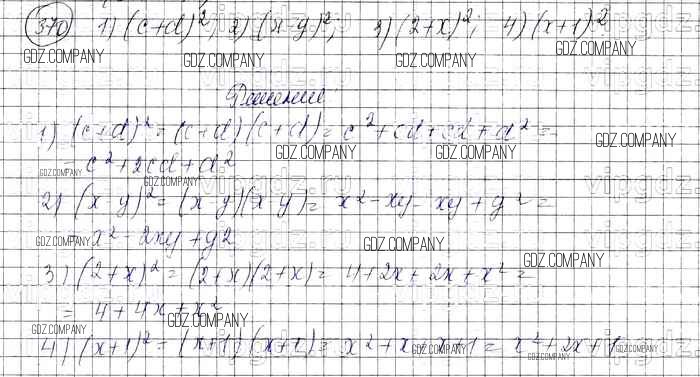 370 1) (c+d)²; 2) (x-y)²; 3) (2+x)²; 4) (x+1)²
GDZ.COMPANY GDZ.COMPANY GDZ.COMPANY GDZ.COMPANY
Решение
1) (c+d)² = (c+d)(c+d) = c²+cd+cd+d² =
GDZ.COMPANY GDZ.COMPANY
= c²+2cd+d²
GDZ.COMPANY GDZ.COMPANY
2) (x-y)² = (x-y)(x-y) = x²-xy-xy+y² =
x²-2xy+y²
GDZ.COMPANY GDZ.COMPANY GDZ.COMPANY
3) (2+x)² = (2+x)(2+x) = 4+2x+2x+x² =
= 4+4x+x²
GDZ.COMPANY GDZ.COMPANY
4) (x+1)² = (x+1)(x+1) = x²+x+x+1 = x²+2x+1
GDZ.COMPANY GDZ.COMPANY GDZ.COMPANY
vipgdz.ru